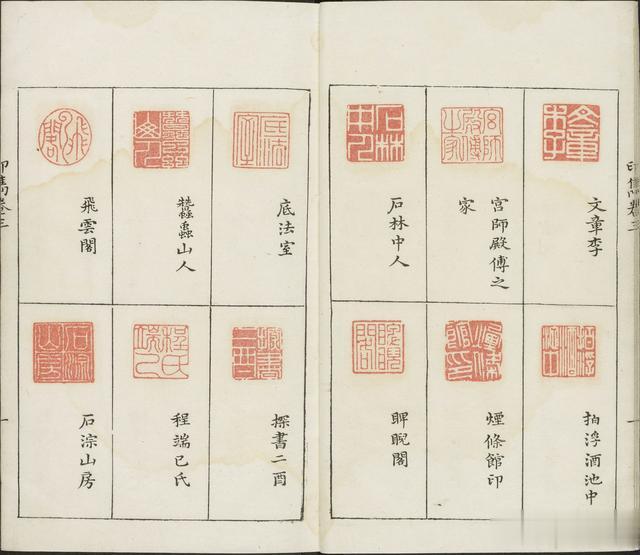 印雋卷三
文章李
宮師殿傅之
家
石林中人
拍浮酒池中
煙條館印
睥睨閣
底法室
蠶蝨山人
飛雲閣
探書二酉
程端已氏
石淙山房
印雋卷三